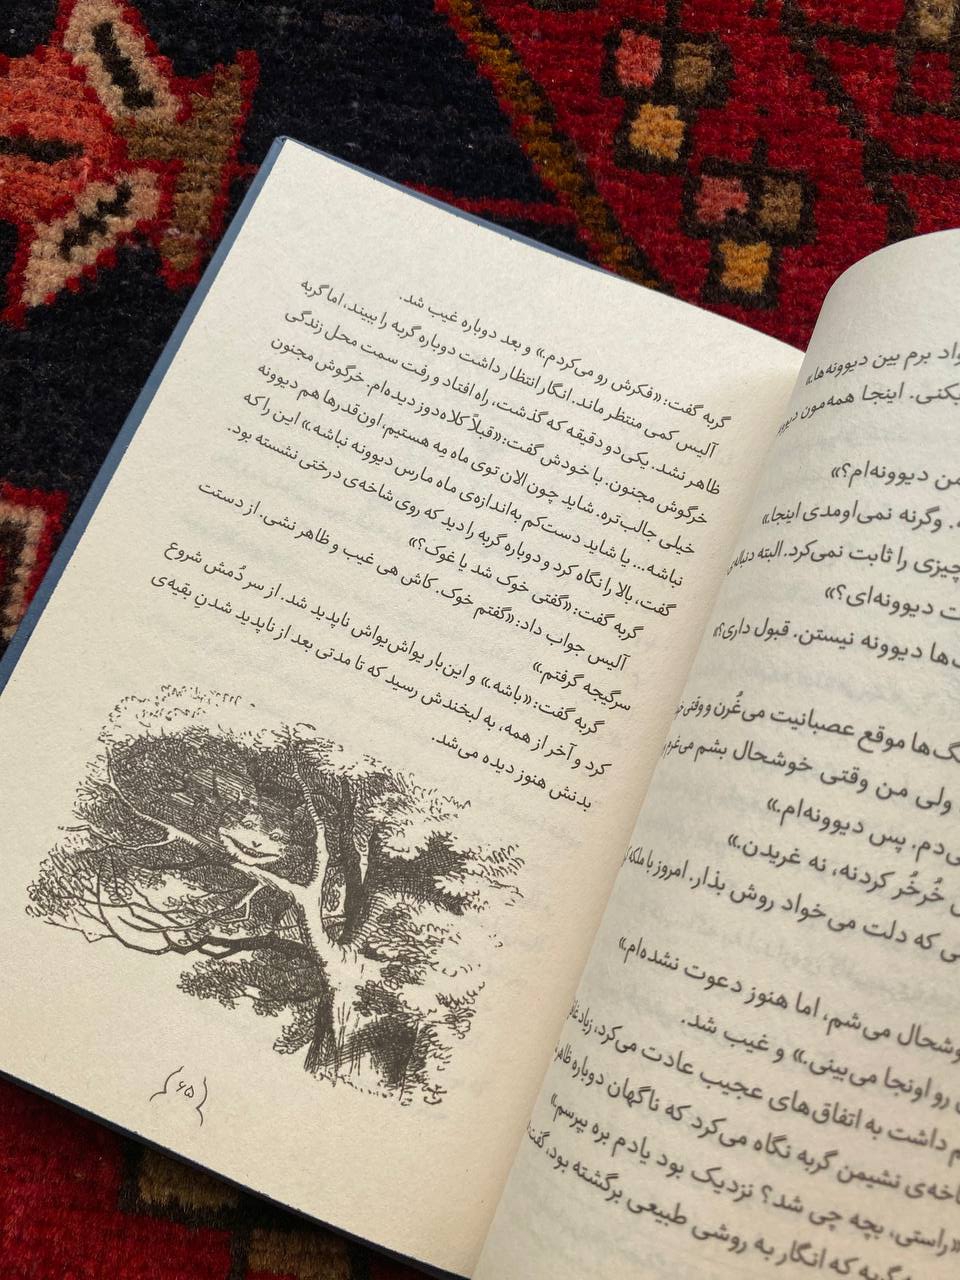 واد برم بین دیوونه‌ها.»
بکنی. اینجا همه‌مون
من دیوونه‌ام؟»
وگرنه نمی‌اومدی اینجا.»
چیزی را ثابت نمی‌کرد. البته
ت دیوونه‌ای؟»
ها دیوونه نیستن. قبول داری؟»
گ‌ها موقع عصبانیت می‌غُرن و وقتی
ولی من وقتی خوشحال بشم می‌غرم
ی‌دم. پس دیوونه‌ام.»
خُرخُر کردنه، نه غریدن.»
ی که دلت می‌خواد روش بذار. امروز با ملکه
وشحال می‌شم، اما هنوز دعوت نشده‌ام.»
رو اونجا می‌بینی.» و غیب شد.
م داشت به اتفاق‌های عجیب عادت می‌کرد، زیاد
اخه‌ی نشیمن گربه نگاه می‌کرد که ناگهان دوباره
«راستی، بچه چی شد؟ نزدیک بود یادم بره بپرسم.»
که انگار به روشی طبیعی برگشته بود، گفت:
گربه گفت: «فکرش رو می‌کردم.» و بعد دوباره غیب شد.
آلیس کمی منتظر ماند. انگار انتظار داشت دوباره گربه را ببیند، اما گربه
ظاهر نشد. یکی‌دو دقیقه که گذشت، راه افتاد و رفت سمت محل زندگی
خرگوش مجنون. با خودش گفت: «قبلاً کلاه‌دوز دیده‌ام. خرگوش مجنون
خیلی جالب‌تره. شاید چون الان توی ماه مِه هستیم، اون‌قدرها هم دیوونه
نباشه... یا شاید دست‌کم به‌اندازه‌ی ماه مارس دیوونه نباشه.» این را که
گفت، بالا را نگاه کرد و دوباره گربه را دید که روی شاخه‌ی درختی نشسته بود.
گربه گفت: «گفتی خوک شد یا غوک؟»
آلیس جواب داد: «گفتم خوک. کاش هی غیب و ظاهر نشی. از دستت
سرگیجه گرفتم.»
گربه گفت: «باشه.» و این‌بار یواش‌یواش ناپدید شد. از سر دُمش شروع
کرد و آخر از همه، به لبخندش رسید که تا مدتی بعد از ناپدید شدنِ بقیه‌ی
بدنش هنوز دیده می‌شد.
۶۵